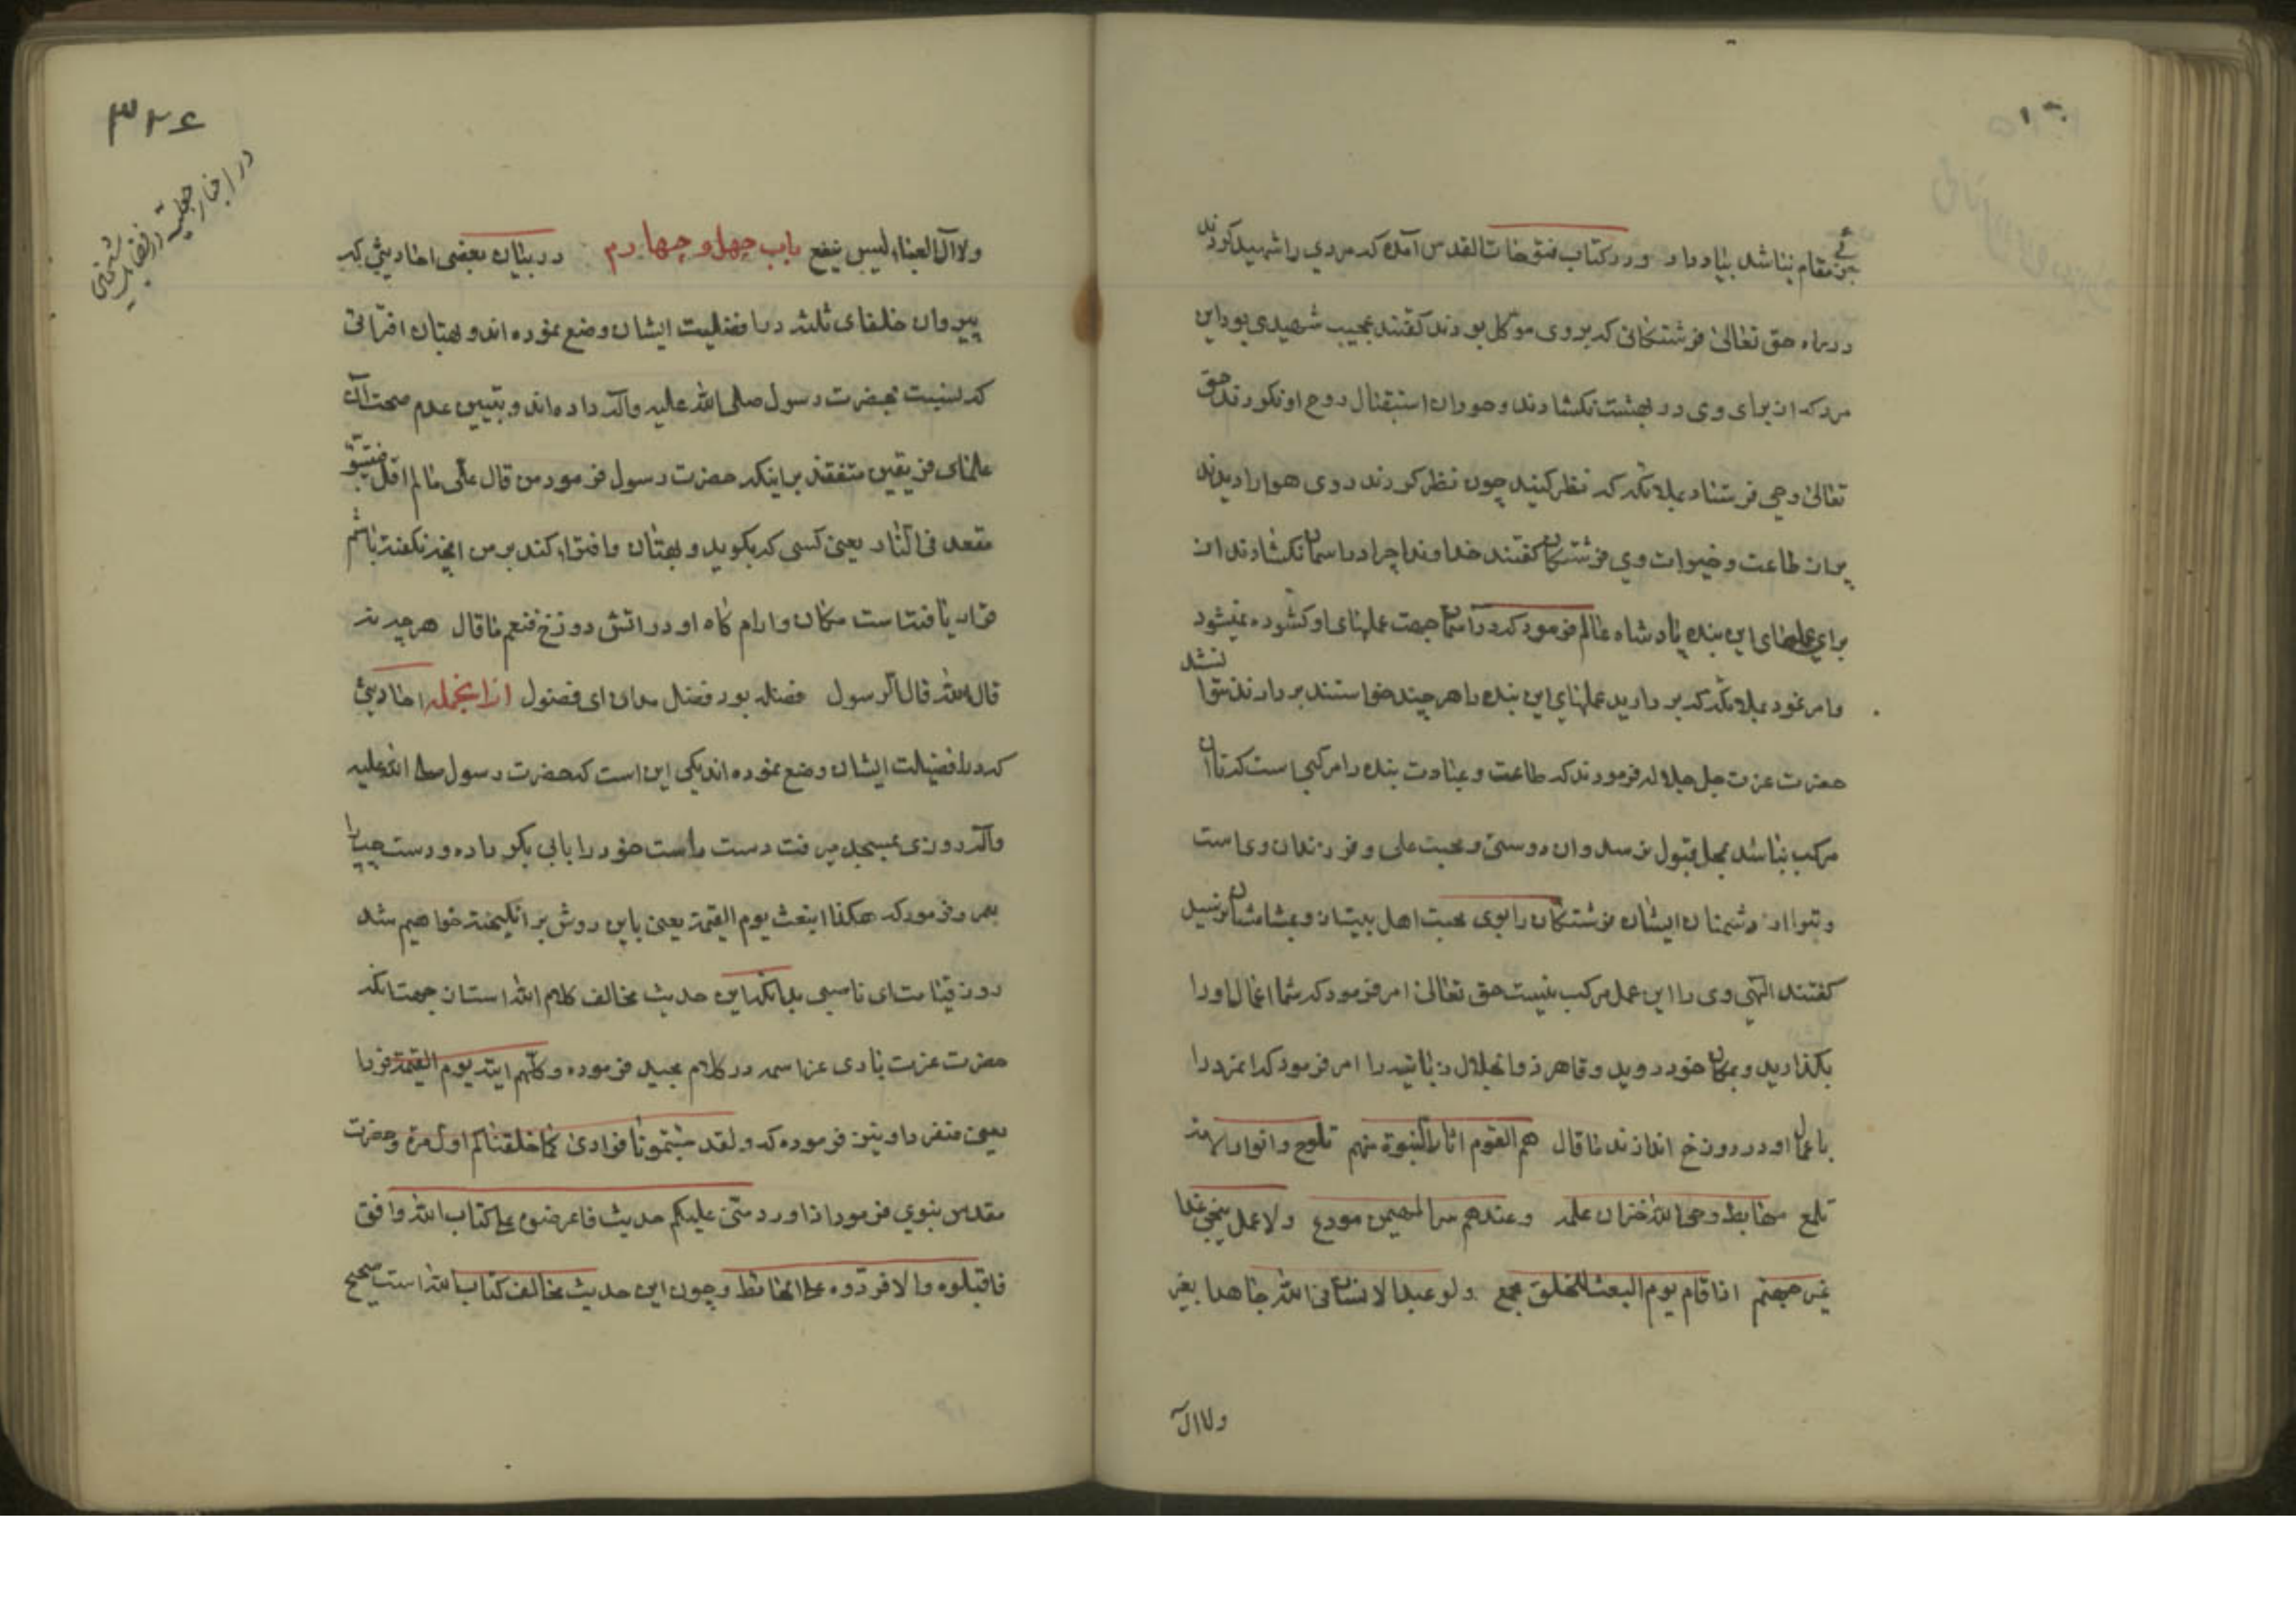 مقام نباشد بنیاد داد و در کتاب فتوحات القدس آمده که مردی را شهید کردند
در راه حق تعالی فرشتکانی که بر وی موکل بودند کفتند عجیب شهیدی بود این
مرد که از برای وی در بهشت نکشادند و حوران استقبال روح او نکردند حق
تعالی وحی فرستاد بملائکه که نظر کنید چون نظر کردند روی هوا را دیدند
پر از طاعت و خیرات وی فرشتکان کفتند خداوندا چرا در اسمان نکشادند از
برای عملهای این بنده پادشاه عالم فرمود که در اسمان جهت عملهای او کشوده نمیشود
و امر نمود بملائکه که بر دارید عملهای این بنده را هر چند خواستند بر دارند نتوا
نشد
حضرت عزت جل جلاله فرمودند که طاعت و عبادت بنده را مرکبی است که تا آن
مرکب نباشد بمحل قبول نرسد و ان دوستی و محبت علی و فرزندان وی است
ایشان فرشتکان را بوی محبت اهل بیت ان بمشامشان نرسید
کفتند الهی وی را این عمل مرکب نیست حق تعالی امر فرمود که شما اعمال او را
بکذارید و بمکان خود روید و قاهر ذو الجلال زبانیه را امر فرمود که این مرد را
با عمل او در دوزخ اندازند ما قال هم القوم اثار النبوة منهم تلوح و انوار الامامة
تلمع مهابط وحی الله خزان علمه و عندهم سر المهیمن مودع ولا عمل ینجی غدا
غیر حبهم اذا قام یوم البعث للخلق مجمع ولو عبد الانسان فی الله جاهدا بغیر
ولا ال
٣٢٤
در اخبار جعلیه در فضایل شیخین
ولا ال العبا لیس ینفع باب چهل و چهارم در بیان بعضی احادیثی که
پیروان خلفای ثلثه در افضلیت ایشان وضع نموده اند و بهتان افترائی
که بنسبت بحضرت رسول صلی الله علیه وآله داده اند و تبیین عدم صحت آن
علمای فریقین متفقند بر اینکه حضرت رسول فرمود من قال علی ما لم اقل فلیتبوّ
مقعده فی النار یعنی کسی که بکوید و بهتان و افترا کند بر من انچیز نکفته باشم
قرار یافته است مکان و ارام کاه او در اتش دوزخ فنعم ما قال هر چه نه
قال الله قال الرسول فضله بود فضل مدان ای فضول از انجمله احادیثی
که در افضیلت ایشان وضع نموده اند یکی این است که حضرت رسول صلی الله علیه
وآله روزی بمسجد میرفت دست راست خود را بابی بکر داده و دست چپ را
بعمر و فرمود که هکذا ابعث یوم القیمة یعنی باین روش بر انکیخته خواهیم شد
روز قیامت ای ناصبی بدانکه این حدیث مخالف کلام الله است از جهت انکه
حضرت عزت باری عز اسمه در کلام مجید فرموده و کلهم اتیه یوم القیمة فردا
یعنی منفرد و نیز فرموده که و لقد جئتمونا فرادی کما خلقناکم اول مرة و حضرت
مقدس نبوی فرمود اذا ورد متی علیکم حدیث فاعرضوه علی کتاب الله وافق
فاقبلوه والا فردّوه علی الحائط و چون این حدیث مخالف کتاب الله است صحیح